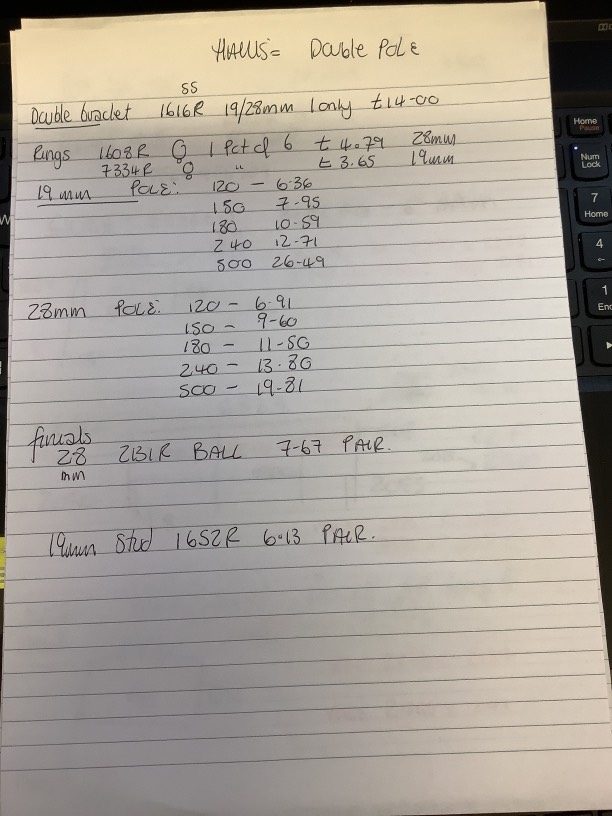 HALLIS = Double Pole
SS
Double bracket 1616R 19/28mm 1 only £14-00
Rings 1608R 1 Pct of 6 £ 4.79 28mm
7334R " £ 3.65 19mm
19mm POLE: 120 - 6.36
150 7-95
180 10-59
240 12-71
500 26-49
28mm POLE: 120 - 6.91
150 - 9-60
180 - 11-50
240 - 13.80
500 - 19-81
finials
28 2131R BALL 7-67 PAIR.
mm
19mm Stud 1652R 6.13 PAIR.
Home
Pause
Num
Lock
7
Home
4
1